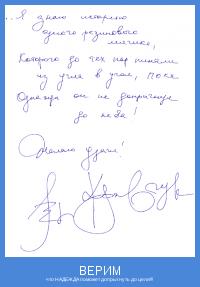 ...Я знаю историю
одного резинового
мячика,
Которого до тех пор пинали
из угла в угол, пока
Однажды он не допрыгнул
до неба!
Желаю удачи!
ВЕРИМ
что НАДЕЖДА поможет допрыгнуть до целей!!!